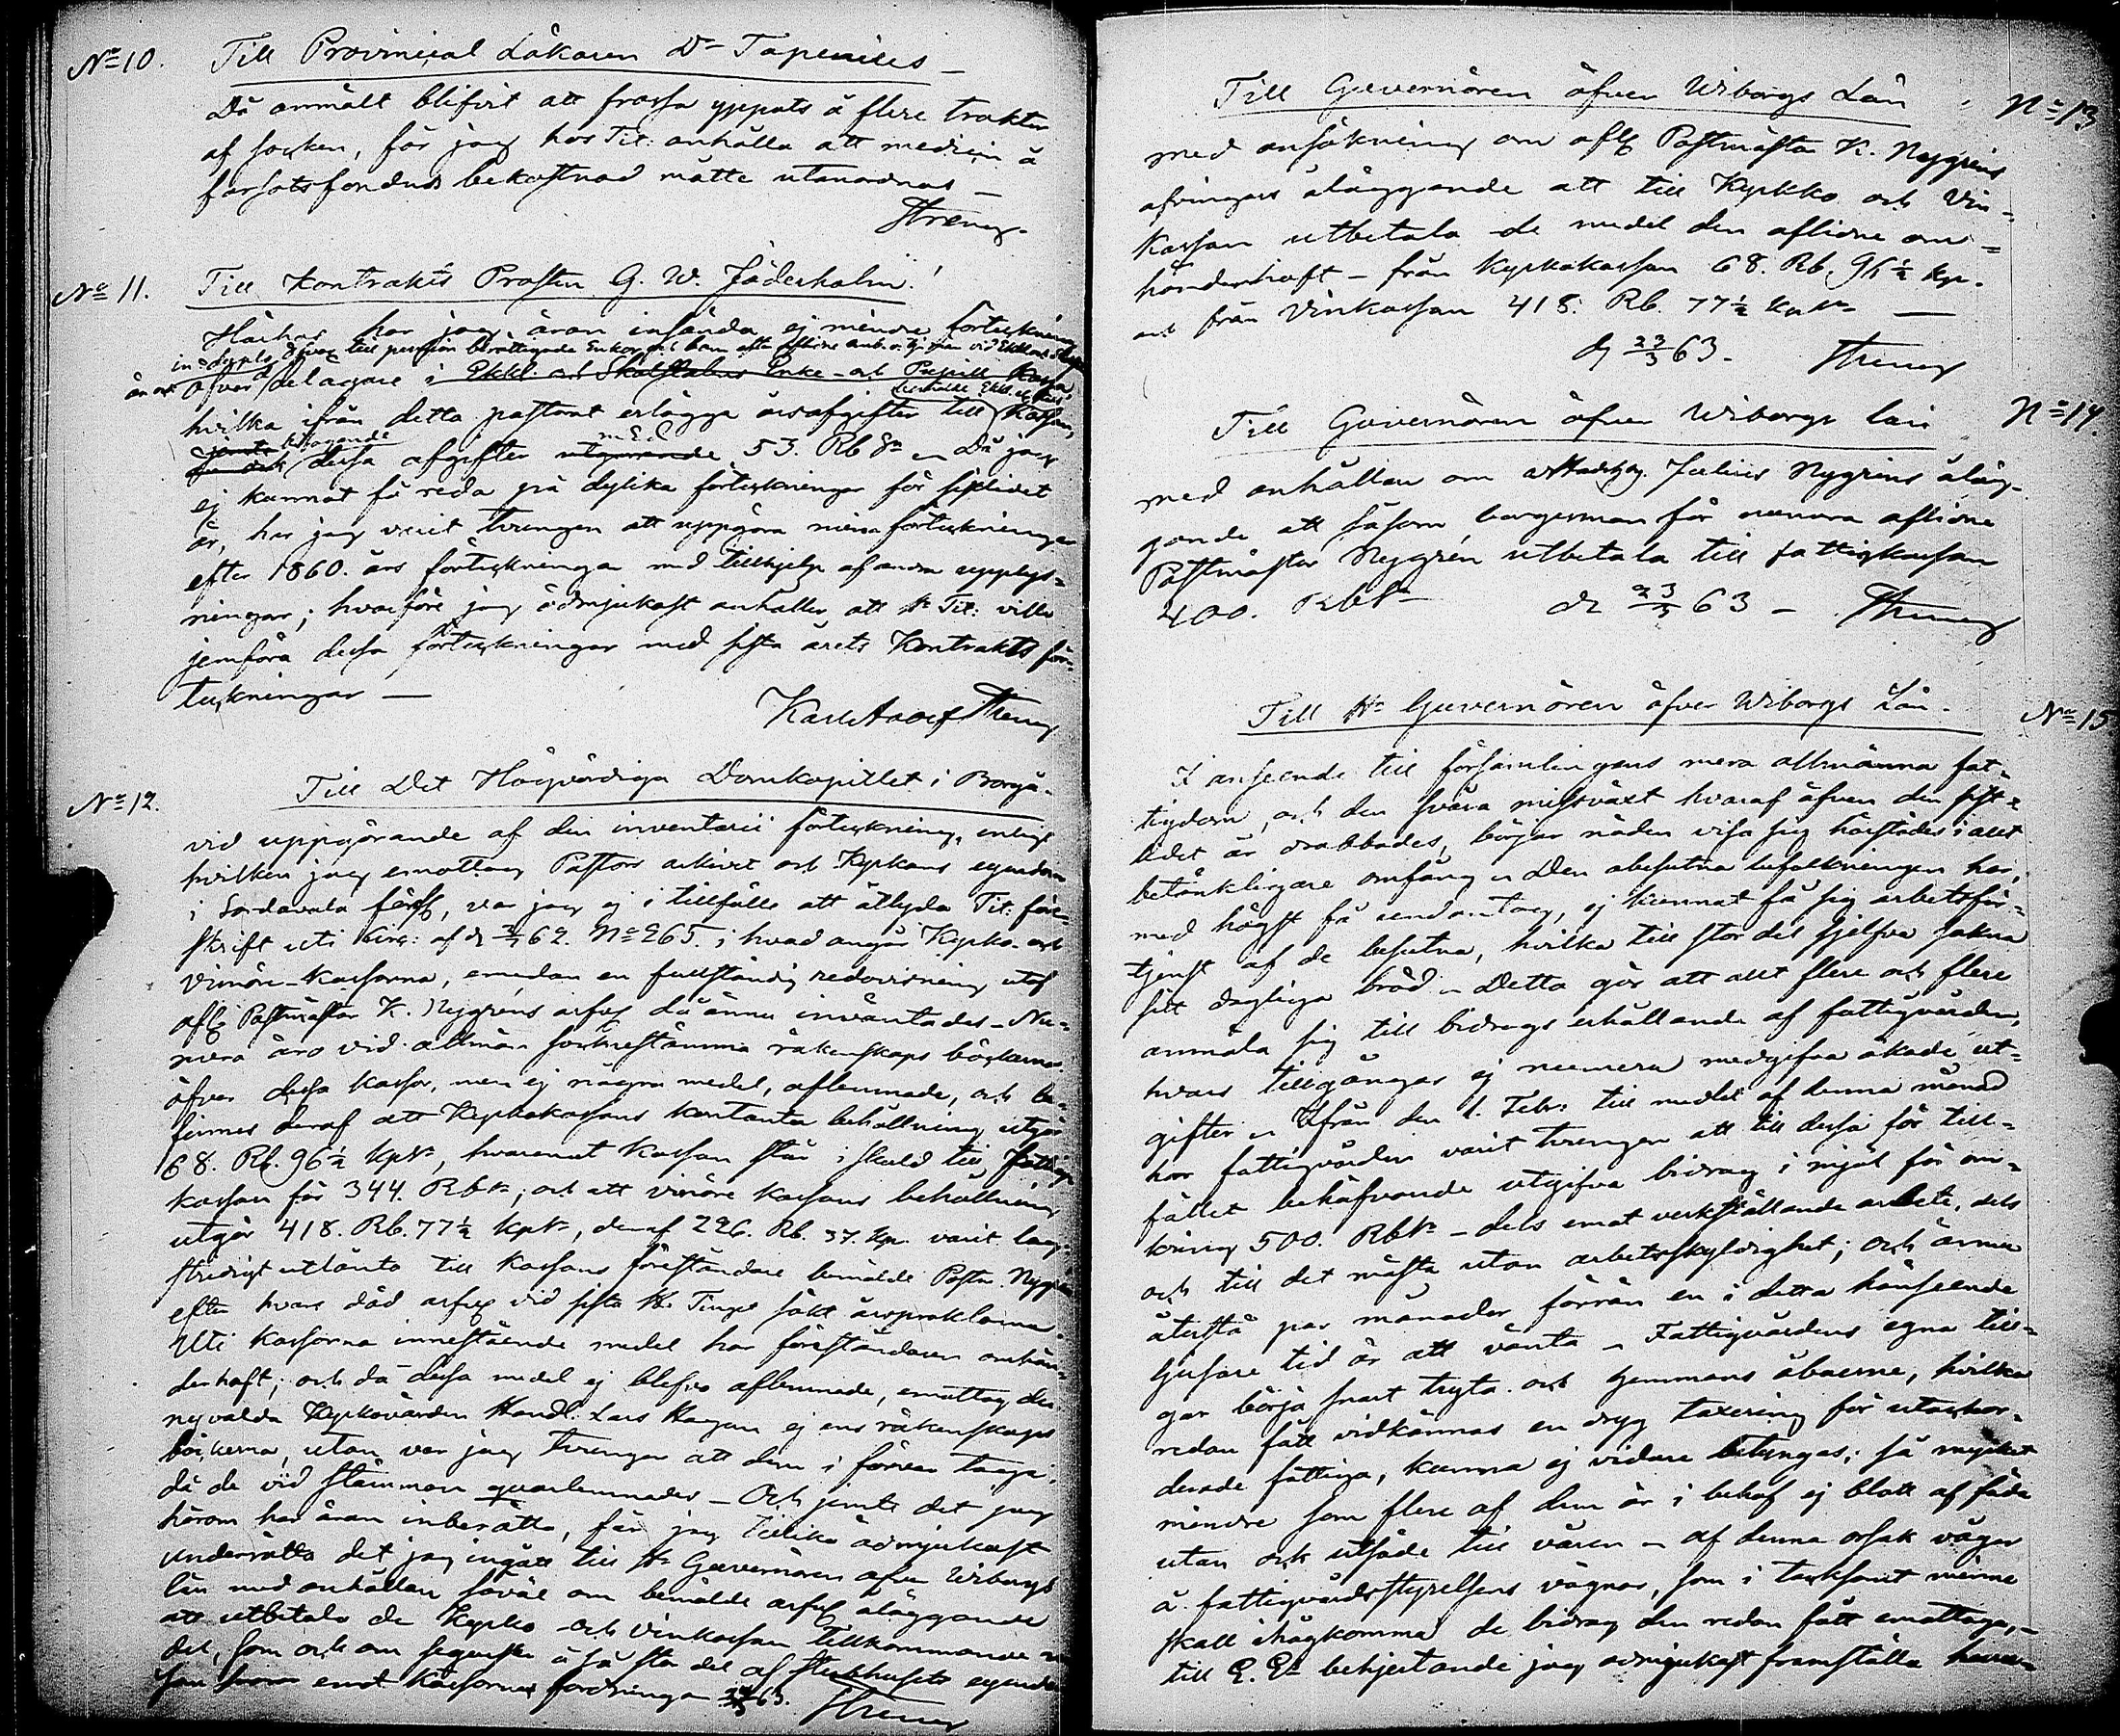 No 10. Till Provincial Läkaren Dr Tapenius
Då anmält blifvit att frossa yppats å flere trakter
af socken, får jag hos Tit: anhålla att medicin å
farsotsfondens bekostnad måtte utanordnas
Streng
No 11. Till Kontrakts Prosten G. W. Jäderholm!
Härhos har jag äran insända ej mindre förteckning
in duplo öfver till pension berättigade Enkor och barn efter aflidne
öfver delägare i Eckl. och Skolstatens Enke- och Pupill Kassa,
hvilka ifrån detta pastorat erlägga årsafgifter till Kassan,
jemte dessa afgifter utgörande med 53. Rb Sr Då jag
ej kunnat få reda på dylika förteckningar för sistlidet
år, har jag varit tvungen att uppgöra mina förteckningar
efter 1860. års förteckningar med tillhjelp af andra upplys-
ningar; hvarföre jag ödmjukast anhåller att Hr Tit: ville
jemföra dessa förteckningar med sista årets Kontrakts för-
teckningar
Karl Adolf Streng
No 12. Till Det Högvördiga Domkapitlet i Borgå.
vid uppgörande af den inventarii förteckning, enligt
hvilken jag emottog Pastors arkivet och Kyrkans egendom
i Sordavala förs, var jag ej i tillfälle att åtlyda Tit: före-
skrift uti Circ: af d 62. No 265. i hvad angår Kyrko- och
Vinöre-Kassorna, emedan en fullständig redovisning utaf
afl Postmästar K. Nygréns arfvg då ännu inväntades - Nu-
mera äro vid allmän sockenstämma räkenskaps böckerna
öfver dessa kassor, men ej några medel, aflemnade, och be-
finnes deraf att Kyrkokassans kontanta behållning utgör
68. Rb. 96½ kpSr, hvaremot Kassan står i skuld till fattig-
kassan för 344. RbSr; och att vinöre kassans behållning
utgör 418. Rb. 77½ kpSr, deraf 226. Rb. 37. kp. varit lag-
stridigt utlånta till Kassans föreståndare bemälde Postm. Nygrén
efter hvars död arfvg vid sista H. Tinget sökt årsproklama.
Uti Kassorna innestående medel har föreståndaren omhän-
derhaft; och då dessa medel ej blefvo aflemnade, emottog den
nyvalda Kyrkovärden Handl. Lars ej ens räkenskaps
böckerna, utan var jag tvungen att dem i förvar taga,
då de vid stämman qvarlemnades - Och jemte det jag
härom har äran inberätta, får jag tillika ödmjukast
underrätta det jag ingått till Hr Guvernören öfver Wiborgs
län med anhållan såväl om bemälde arfvg åläggande
att utbetala de Kyrko och Vinkassan tillkommande me-
del, som och om seqvester å så stor del af sterbhusets egendom
som emot Kassornas fordringar 63. Streng
Till Guvernören öfver Wiborgs Län No 13
med ansökning om afl Postmästar K. Nygréns
arfvingars åläggande att till Kyrkko och Vin-
kassan utbetala de medel den aflidne om-
händerhaft - från Kyrkokassan 68. Rb. 96½ kp.
och från Vinkassan 418. Rb. 77½ kpSr
d 23/3 63. Streng
Till Guvernören öfver Wiborgs län No 14.
med anhållan om Julius Nygréns åläg-
gande att såsom borgesman för numera aflidne
Postmäster Nygrén utbetala till fattigkassan
400. RbSr d 23/3 63 - Streng
Till Hr Guvernören öfver Wiborgs Län. No 15
I anseende till församlingens mera allmänna fat-
tigdom, och den svåra missväxt hvaraf äfven den sist-
lidet år drabbades, börjar nöden visa sig härstädes i allt
betänkligare omfång Den obesutna befolkningen har,
med högst få undantag, ej kunnat få sig arbetsför-
tjenst af de besutna, hvilka till stor del sjelfva sakna
sitt dagliga bröd - Detta gör att allt flere och flere
anmäla sig till bidrags erhållande af fattigvården,
hvars tillgångar ej numera medgifva ökade ut-
gifter Ifrån den 1. Febr: till medlet af denna månad
har fattigvården varit tvungen att till dessa för till-
fället behöfvande utgifva bidrag i mjöl för om-
kring 500. RbSr - dels emot verkställande arbete, dels
och till det mästa utan arbetsskyldighet; och ännu
återstå par månader förrän en i detta hänseende
ljusare tid är att vänta - Fattigvårdens egna till-
gar börja snart tryta och hemmans åboerne, hvilka
redan fått vidkännas en dryg taxering för utackor-
derade fattiga, kunna ej vidare betungas; så mycket
mindre som flere af dem är i behof ej blott af föda
utan ock utsäde till våren - af denna orsak vågar
å fattigvårdsstyrelsens vägnar, som i tacksamt minne
skall ihågkomma de bidrag den redan fått emottaga,-
till E. E behjertande jag ödmjukast framställa huru-